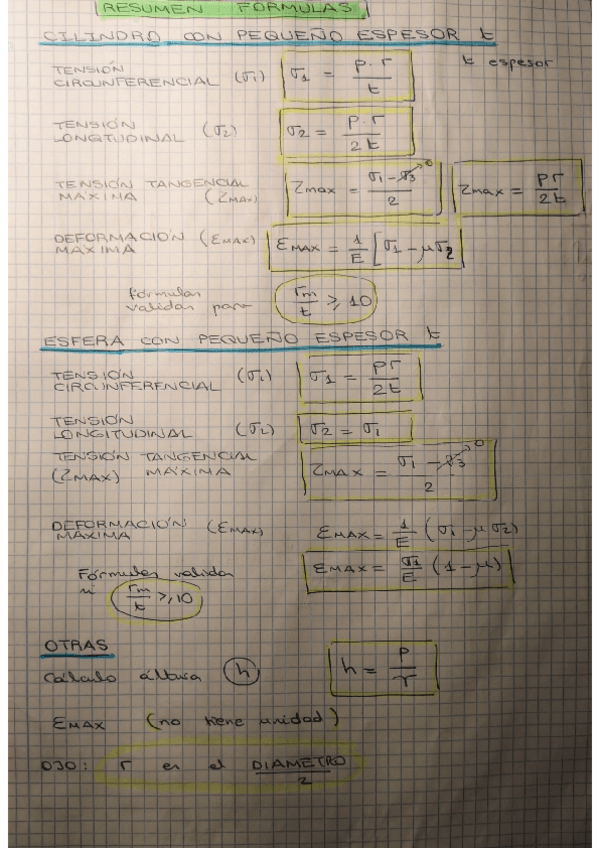 RESUMEN FORMULAS
CILINDRO CON PEQUEÑO ESPESOR t
TENSIÓN CIRCUNFERENCIAL (σ1) σ1 = P·r / t t espesor
TENSIÓN LONGITUDINAL (σ2) σ2 = P·r / 2t
TENSIÓN TANGENCIAL MÁXIMA (ZMAX) Zmax = σ1 - σ3 / 2 0 Zmax = Pr / 2t
DEFORMACIÓN MÁXIMA (εMAX) εMAX = 1/E [σ1 - μσ2
fórmulas validas para rm/t ≥ 10
ESFERA CON PEQUEÑO ESPESOR t
TENSIÓN CIRCUNFERENCIAL (σ1) σ1 = Pr / 2t
TENSIÓN LONGITUDINAL (σ2) σ2 = σ1
TENSIÓN TANGENCIAL (ZMAX) MÁXIMA ZMAX = σ1 - σ3 / 2 0
DEFORMACIÓN MÁXIMA (εMAX) εMAX = 1/E (σ1 - μσ2)
εMAX = σ1/E (1 - μ)
Fórmulas validas si rm/t ≥ 10
OTRAS
Cálculo altura h h = P / γ
εMAX (no tiene unidad)
OJO: r es el DIAMETRO / 2